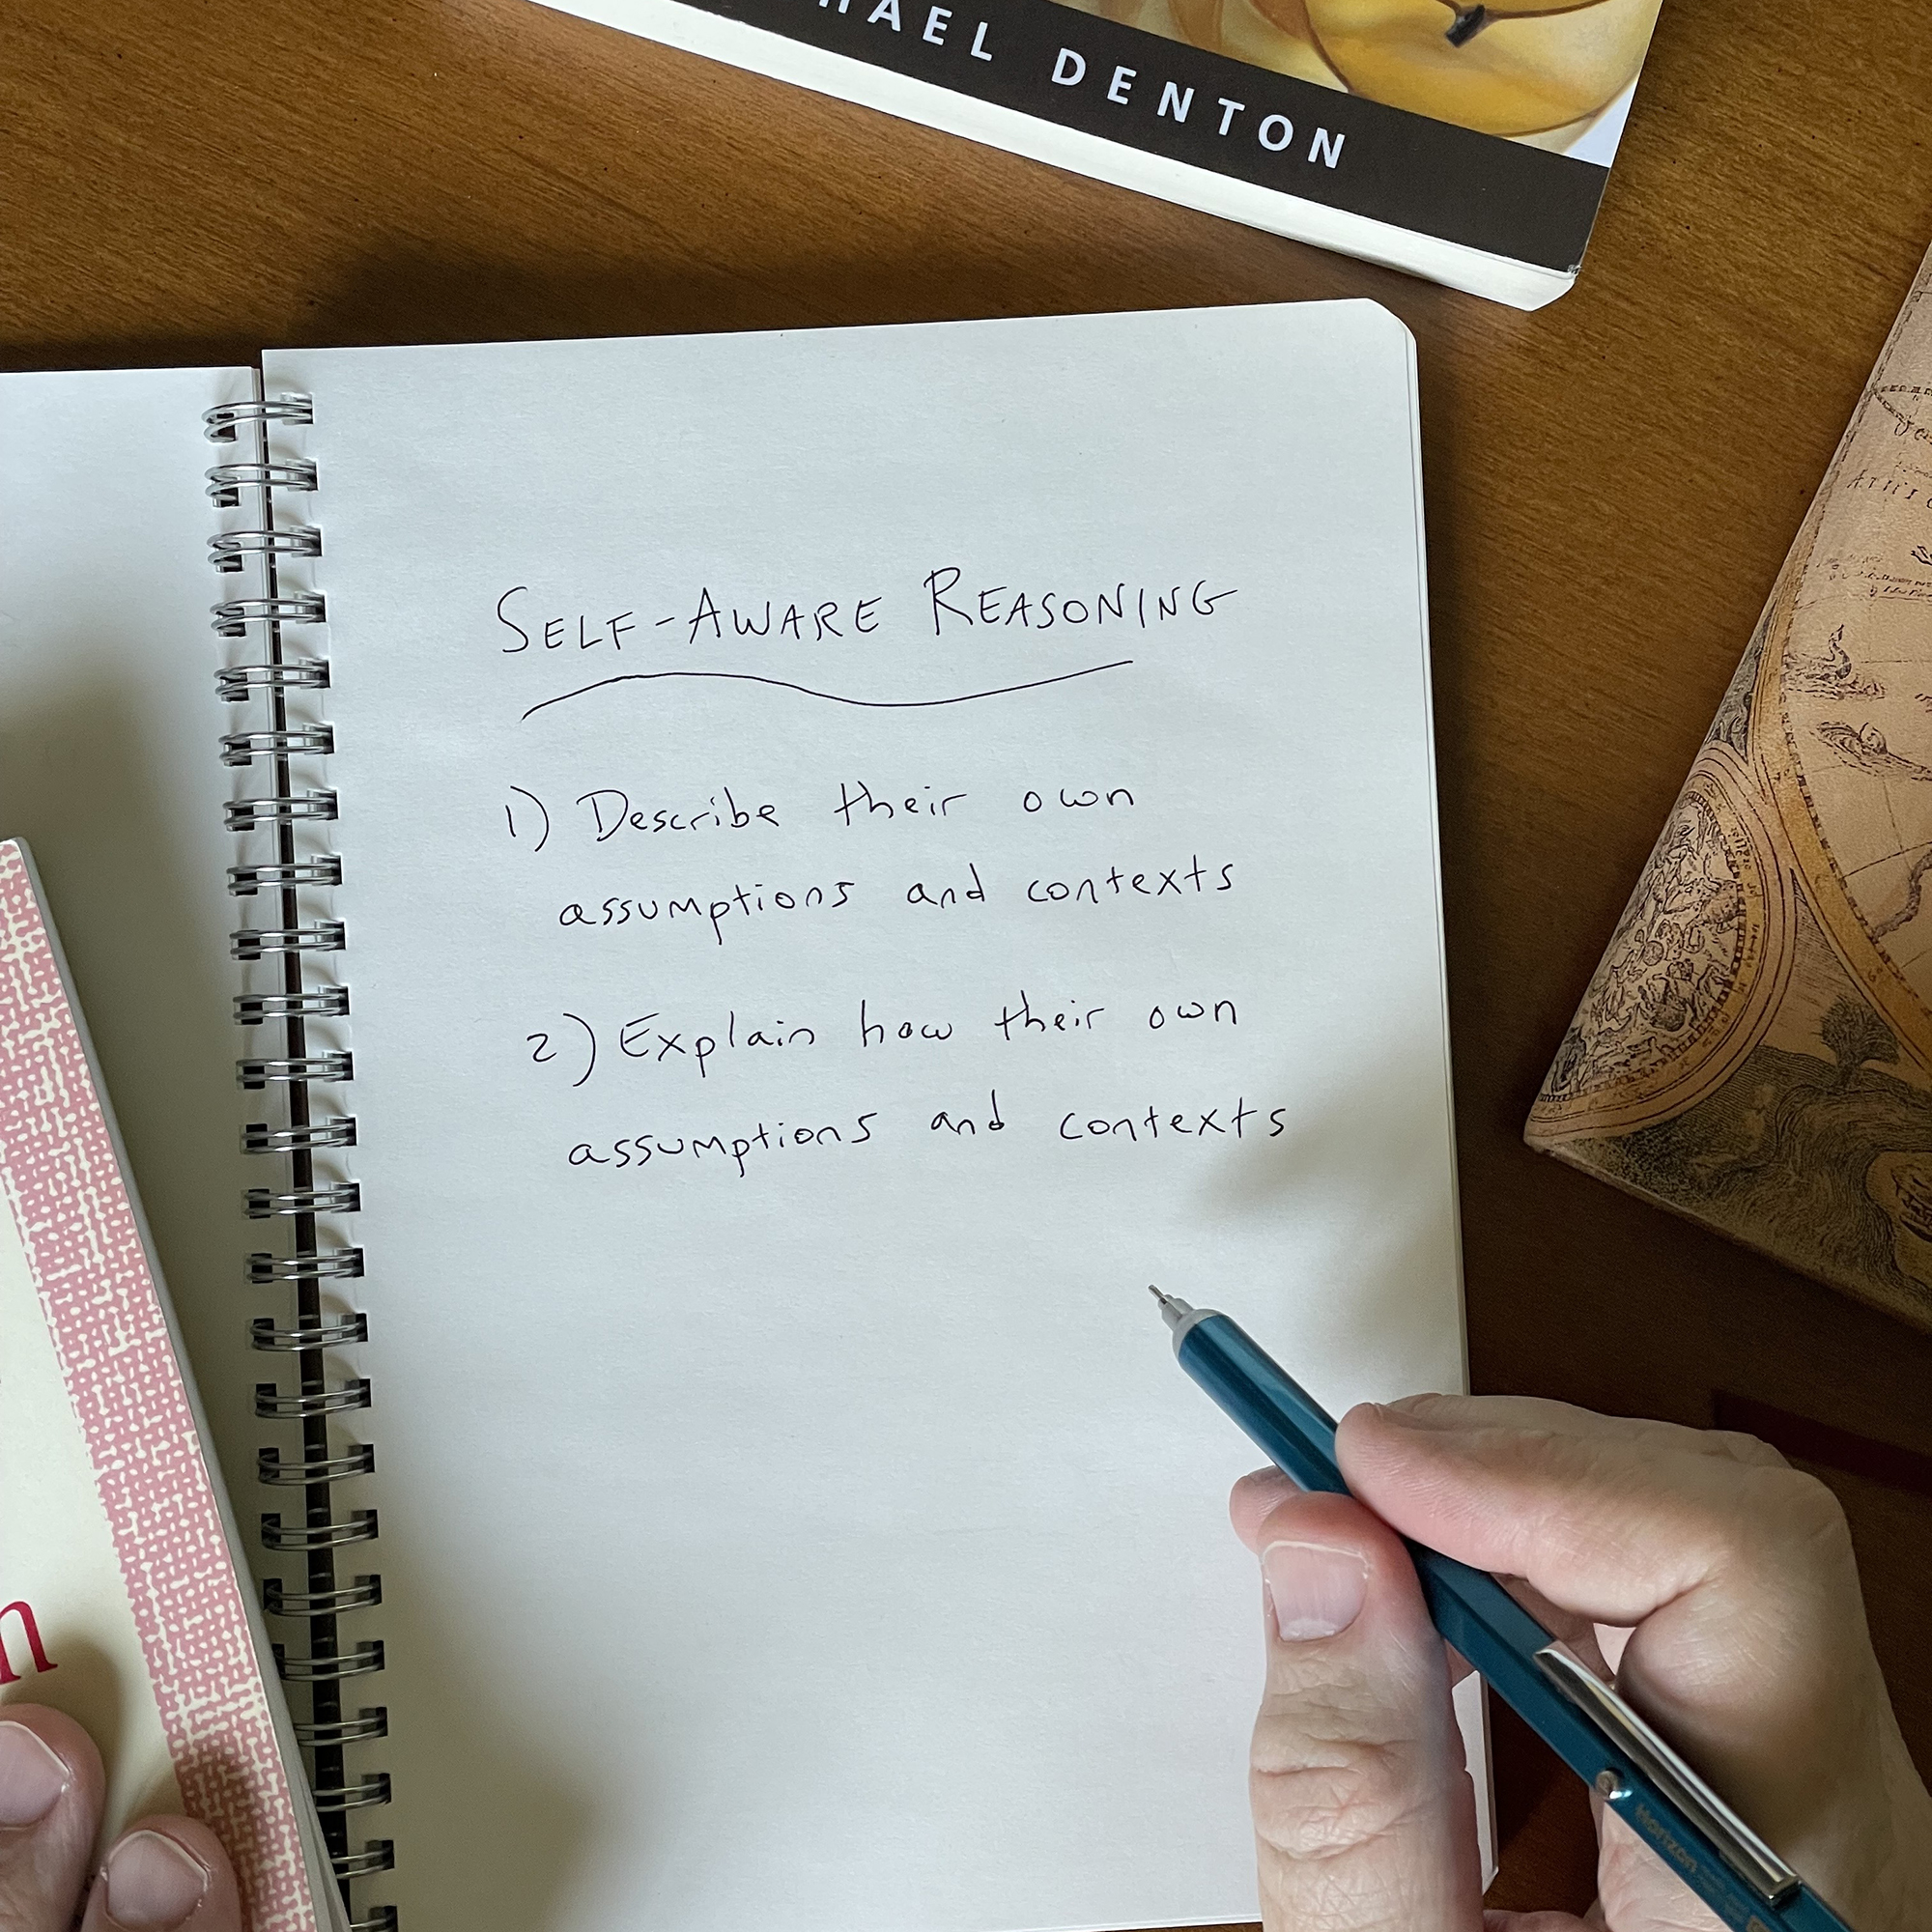 DENTON
SELF-AWARE REASONING
1) Describe their own
assumptions and contexts
2) Explain how their own
assumptions and contexts
n
Horizon